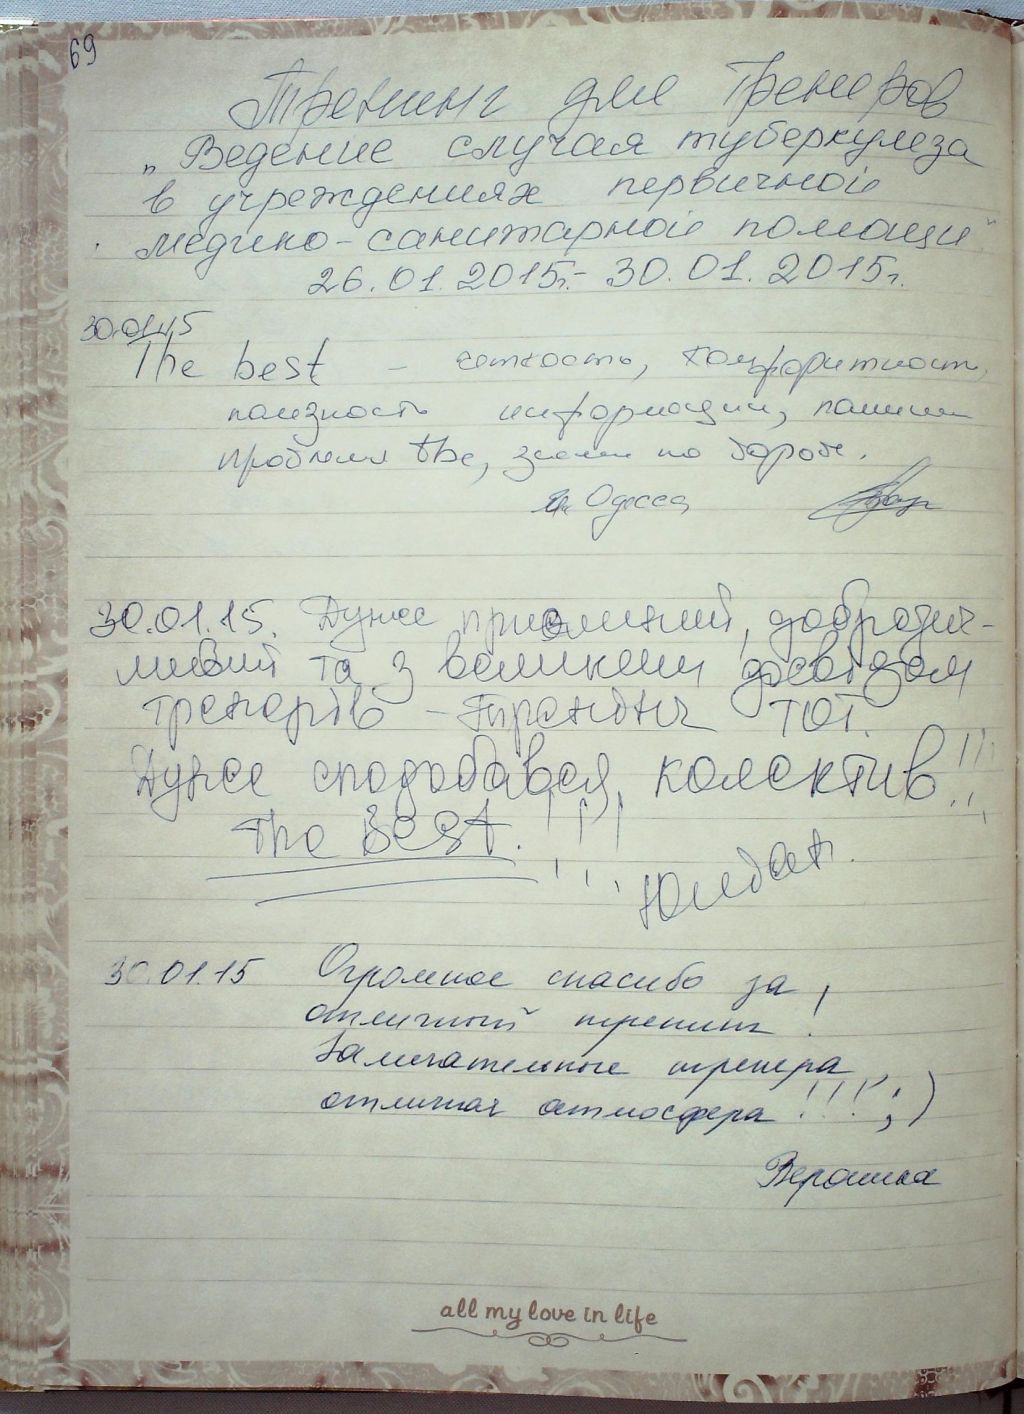 69
Тренинг для тренеров
"Ведение случая туберкулеза
в учреждениях первичной
медико-санитарной помощи"
26.01.2015г.- 30.01.2015г.
30.01.15
The best - четкость, комфортность,
полезность информации,
проблем the, по
г. Одесса
30.01.15. Дуже приємний, доброзич-
ливий та з великим досвідом
тренерів - Тренінг ТОТ.
Дуже сподобався колектив!!!
The BEST.!!!
30.01.15 Огромное спасибо за
отличный тренинг!
Замечательные тренера,
отличная атмосфера!!!;)
Вероника
all my love in life